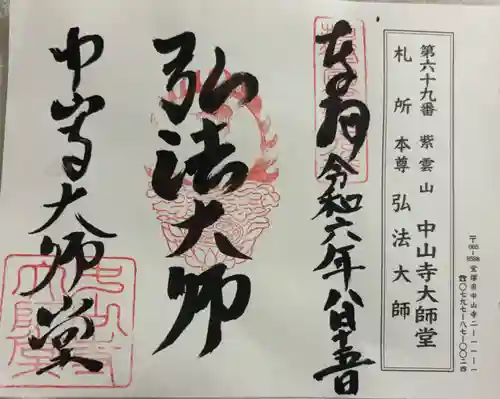 〒665-8588 宝塚市中山寺二-一一-一
☎〇七九七-八七-〇〇二四
第六十九番 紫雲山 中山寺大師堂
札所本尊 弘法大師
奉拝 令和六年八月十五日
弘法大師
中山寺大師堂